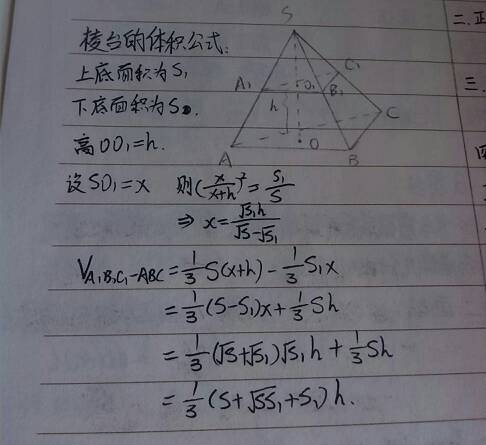 棱台的体积公式:
上底面积为S₁
下底面积为S.
高OO₁=h.
S
A₁
O₁
B₁
C₁
h
A
O
B
C
设SO₁=x 则(x/(x+h))²=S₁/S
⇒ x=√S₁h/(√S-√S₁)
V_A₁B₁C₁-ABC=1/3 S(x+h)-1/3 S₁x
=1/3 (S-S₁)x+1/3 Sh
=1/3 (√S+√S₁)√S₁h+1/3 Sh
=1/3 (S+√SS₁+S₁)h.
二.正
三.